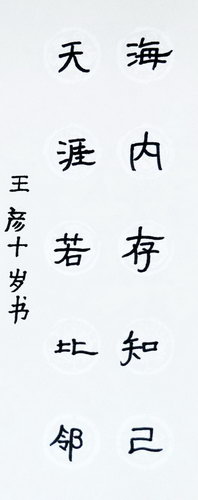 海内存知己
天涯若比邻
王彦十岁书